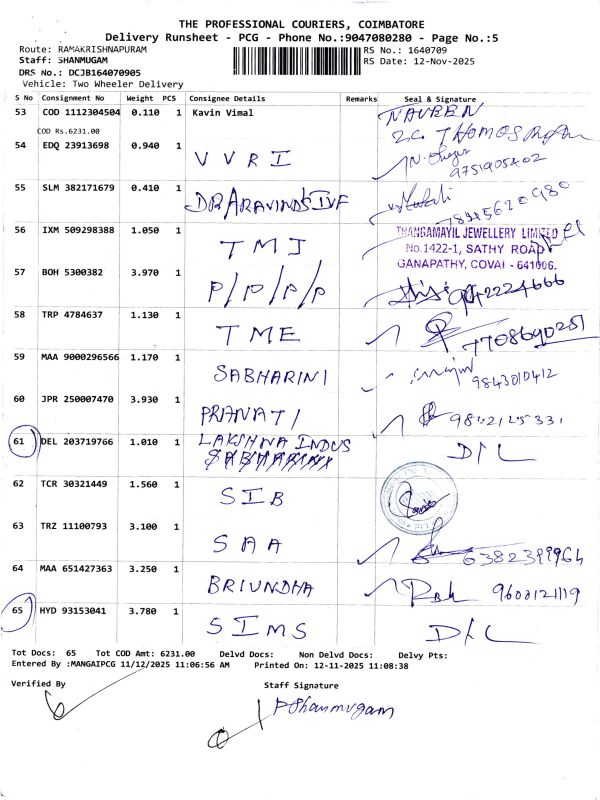 THE PROFESSIONAL COURIERS, COIMBATORE
Delivery Runsheet - PCG - Phone No.:9047080280 - Page No.:5
Route: RAMAKRISHNAPURAM RS No.: 1640709
Staff: SHANMUGAM RS Date: 12-Nov-2025
DRS No.: DCJB164070905
Vehicle: Two Wheeler Delivery
S No Consignment No Weight PCS Consignee Details Remarks Seal & Signature
53 COD 1112304504 0.110 1 Kavin Vimal NAVEEN
COD Rs.6231.00
54 EDQ 23913698 0.940 1 VVRI 9751905402
55 SLM 382171679 0.410 1 DR ARAVINDS IVF
56 IXM 509298388 1.050 1 TMJ THANGAMAYIL JEWELLERY LIMITED
No.1422-1, SATHY ROAD
GANAPATHY, COVAI - 641006.
57 BOH 5300382 3.970 1 P/P/P/P
58 TRP 4784637 1.130 1 TME 7708690251
59 MAA 9000296566 1.170 1 SABHARINI 9843010412
60 JPR 250007470 3.930 1 PRANATI 9842125331
61 DEL 203719766 1.010 1 LAKSHNA INDUS D/L
62 TCR 30321449 1.560 1 SIB
63 TRZ 11100793 3.100 1 SAA 6382399964
64 MAA 651427363 3.250 1 BRIUNDHA 9600121119
65 HYD 93153041 3.780 1 SIMS D/L
Tot Docs: 65 Tot COD Amt: 6231.00 Delvd Docs: Non Delvd Docs: Delvy Pts:
Entered By :MANGAIPCG 11/12/2025 11:06:56 AM Printed On: 12-11-2025 11:08:38
Verified By Staff Signature
P Shanmugam